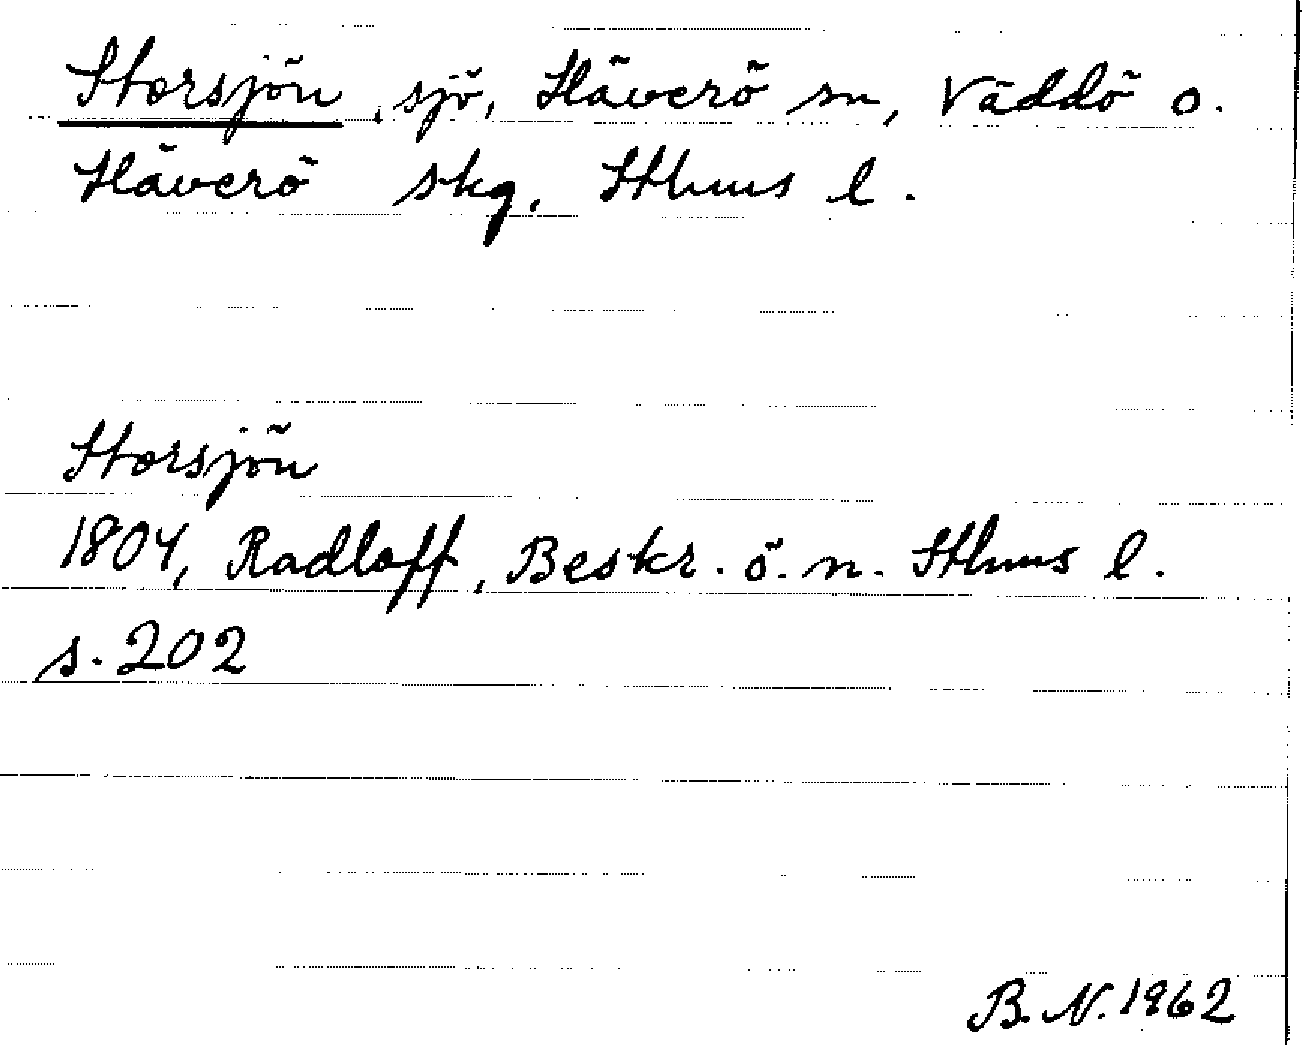 Storsjön, sjö, Häverö sn, Väddö o.
Häverö skg, Sthms l.
Storsjön
1804, Radloff, Beskr. ö. n. Sthms l.
s. 202
B. N. 1962